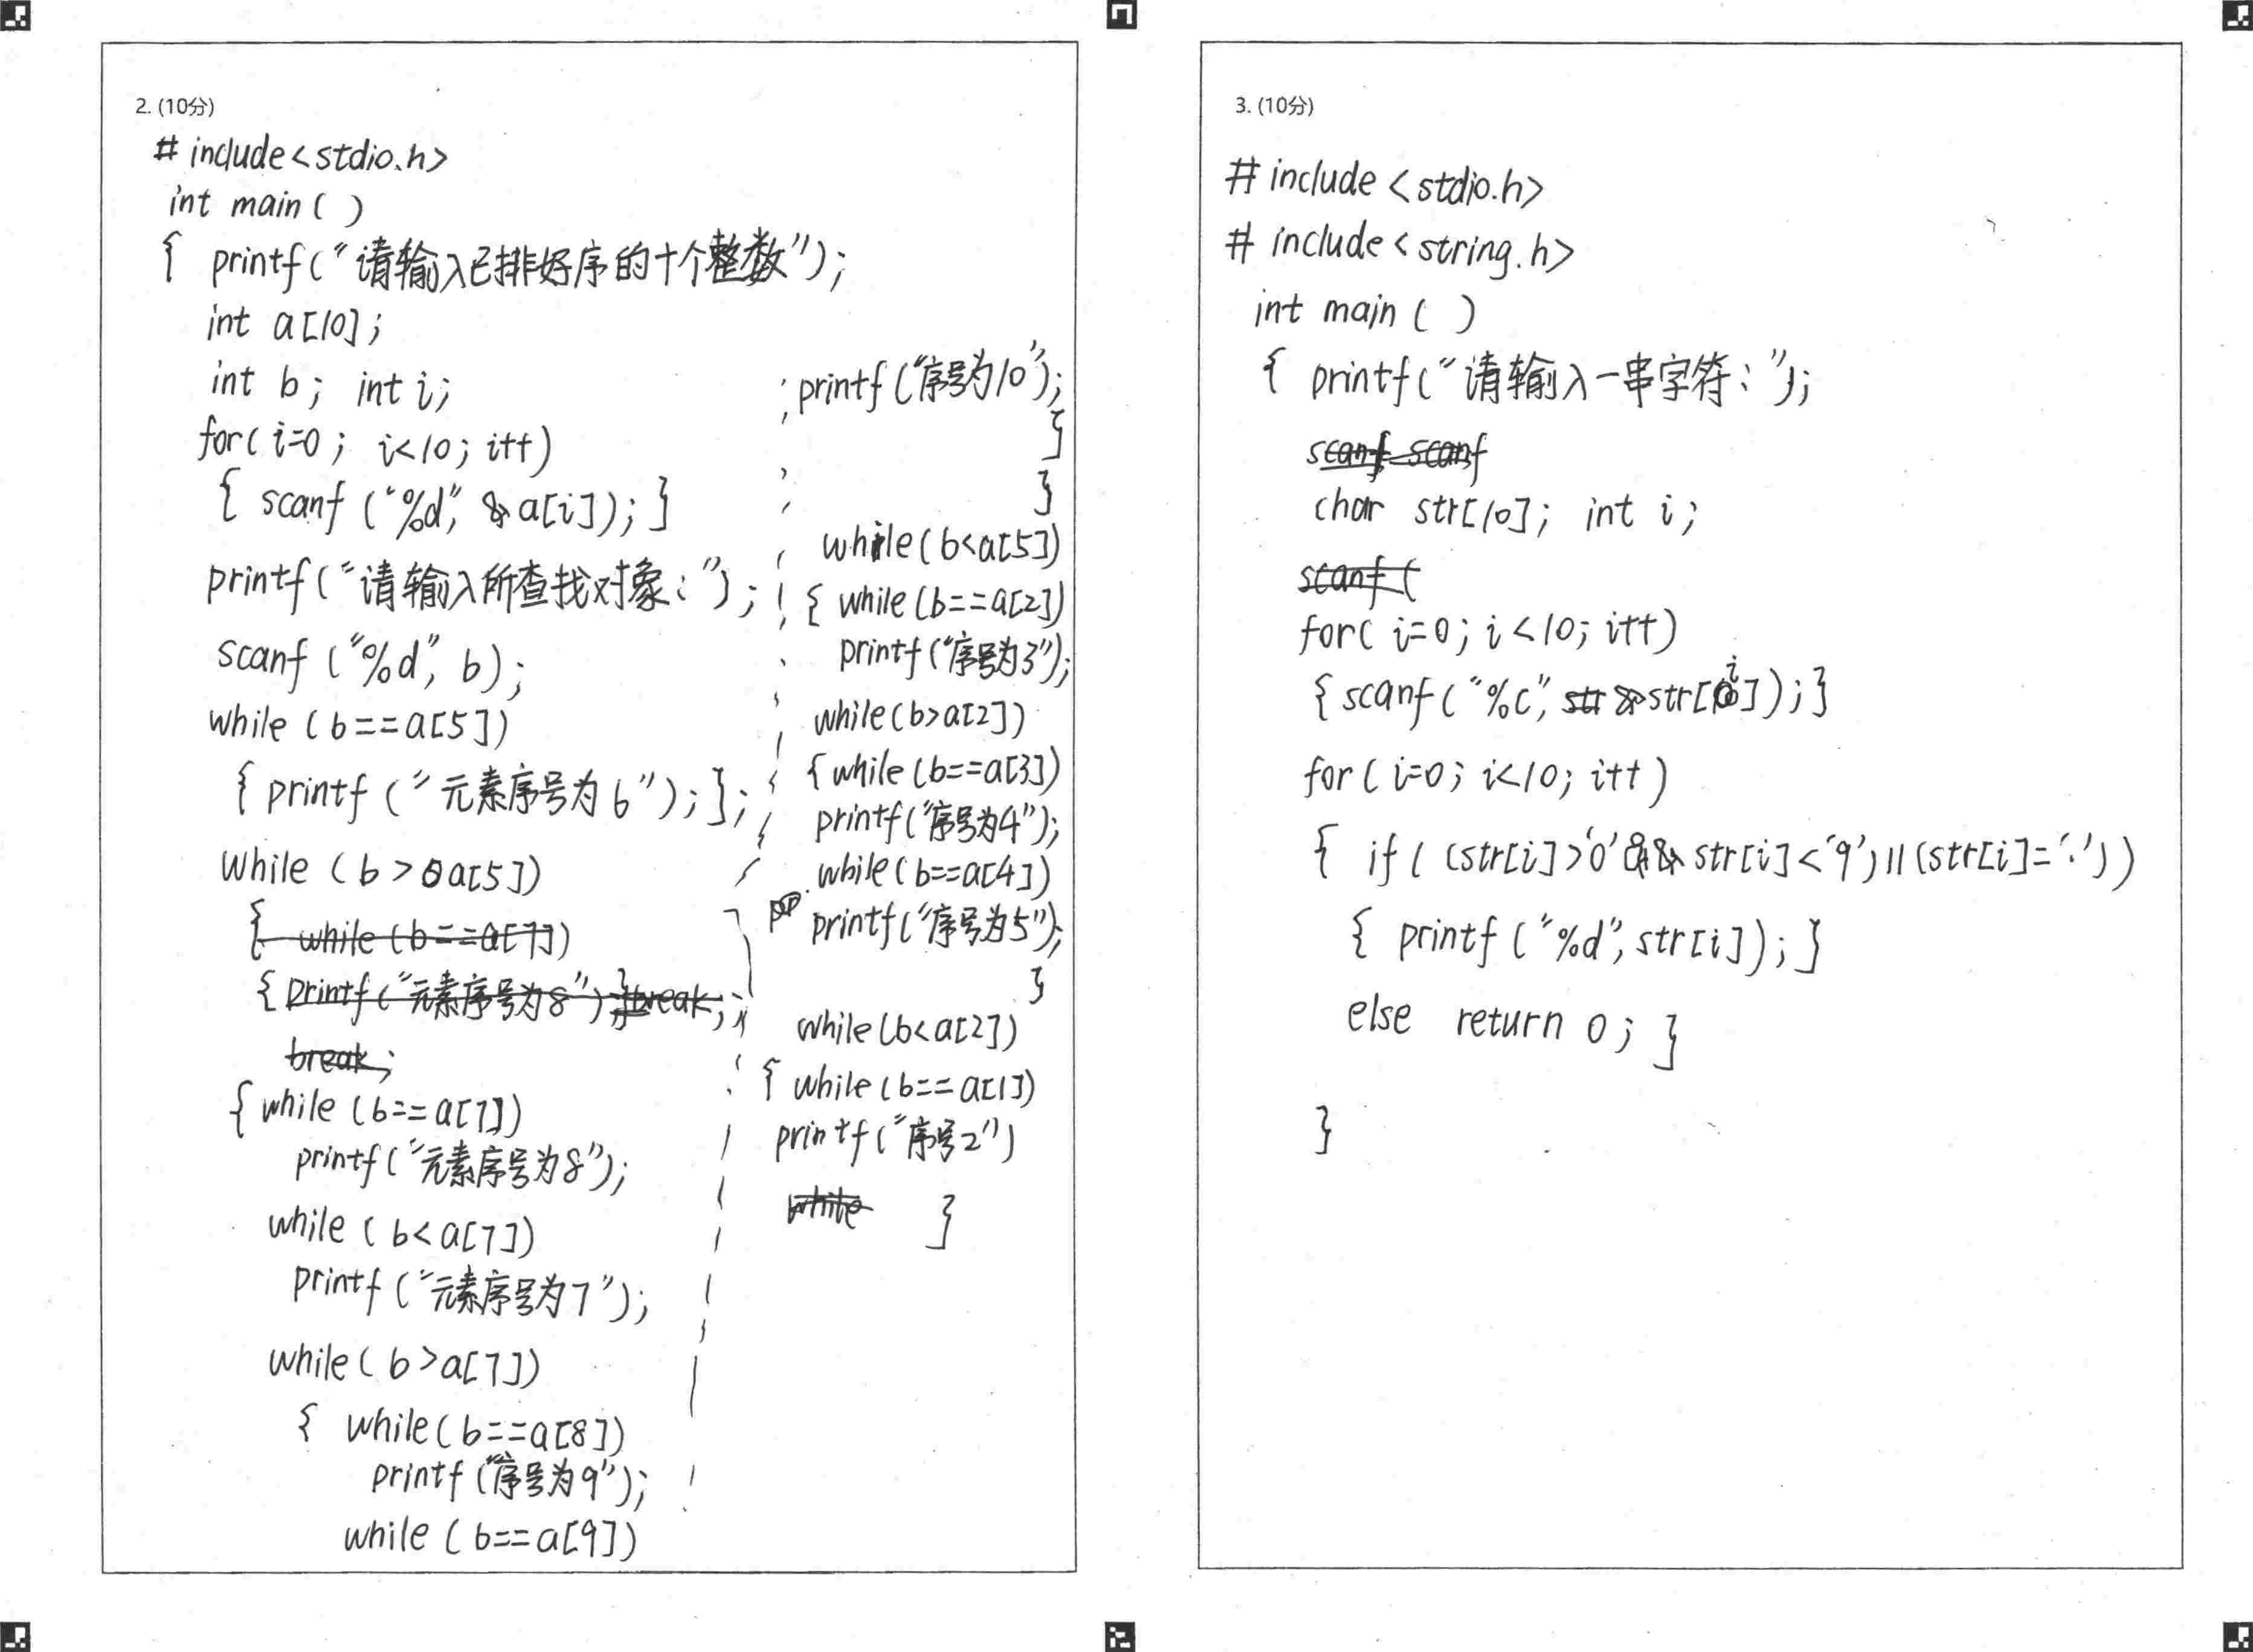 2. (10分)
# include<stdio.h>
int main( )
{ printf("请输入已排好序的十个整数");
int a[10];
int b; int i;
for( i=0; i<10; i++)
{ scanf ("%d", &a[i]); }
printf("请输入所查找对象:");
scanf ("%d", b);
while (b==a[5])
{ printf ("元素序号为6"); };
while (b>a[5])
{ while (b==a[7])
{ printf("元素序号为8"); break;
break;
{ while (b==a[7])
printf("元素序号为8");
while ( b< a[7])
printf ("元素序号为7");
while ( b>a[7])
{ while(b==a[8])
printf ("序号为9");
while ( b==a[9])
printf ("序号为10");
}
}
while(b<a[5])
{ while(b==a[2])
printf("序号为3");
while(b>a[2])
{ while(b==a[3])
printf("序号为4");
while(b==a[4])
printf("序号为5");
}
while(b<a[2])
{ while(b==a[1])
printf("序号2")
while }
3. (10分)
# include <stdio.h>
# include<string.h>
int main ( )
{ printf("请输入一串字符:");
scanf scanf
char str[10]; int i;
scanf (
for( i=0; i<10; i++)
{ scanf("%c", str &str[i]); }
for( i=0; i<10; i++)
{ if( (str[i]>'0'&& str[i]<'9')||(str[i]='.'))
{ printf ("%d", str[i]); }
else return 0; }
}